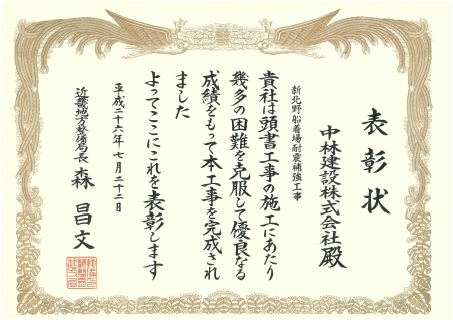 表彰状
中林建設株式会社殿
新北野船着場耐震補強工事
貴社は頭書工事の施工にあたり
幾多の困難を克服して優良なる
成績をもって本工事を完成され
ました
よってここにこれを表彰します
平成二十六年七月二十二日
近畿地方整備局長 森昌文